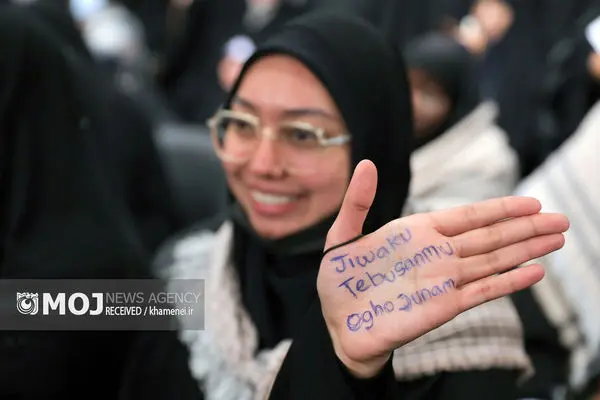 Jiwaku
Tebuganmu
Ogho Junam
MOJ NEWS AGENCY
RECEIVED / KHAMENEI.IR